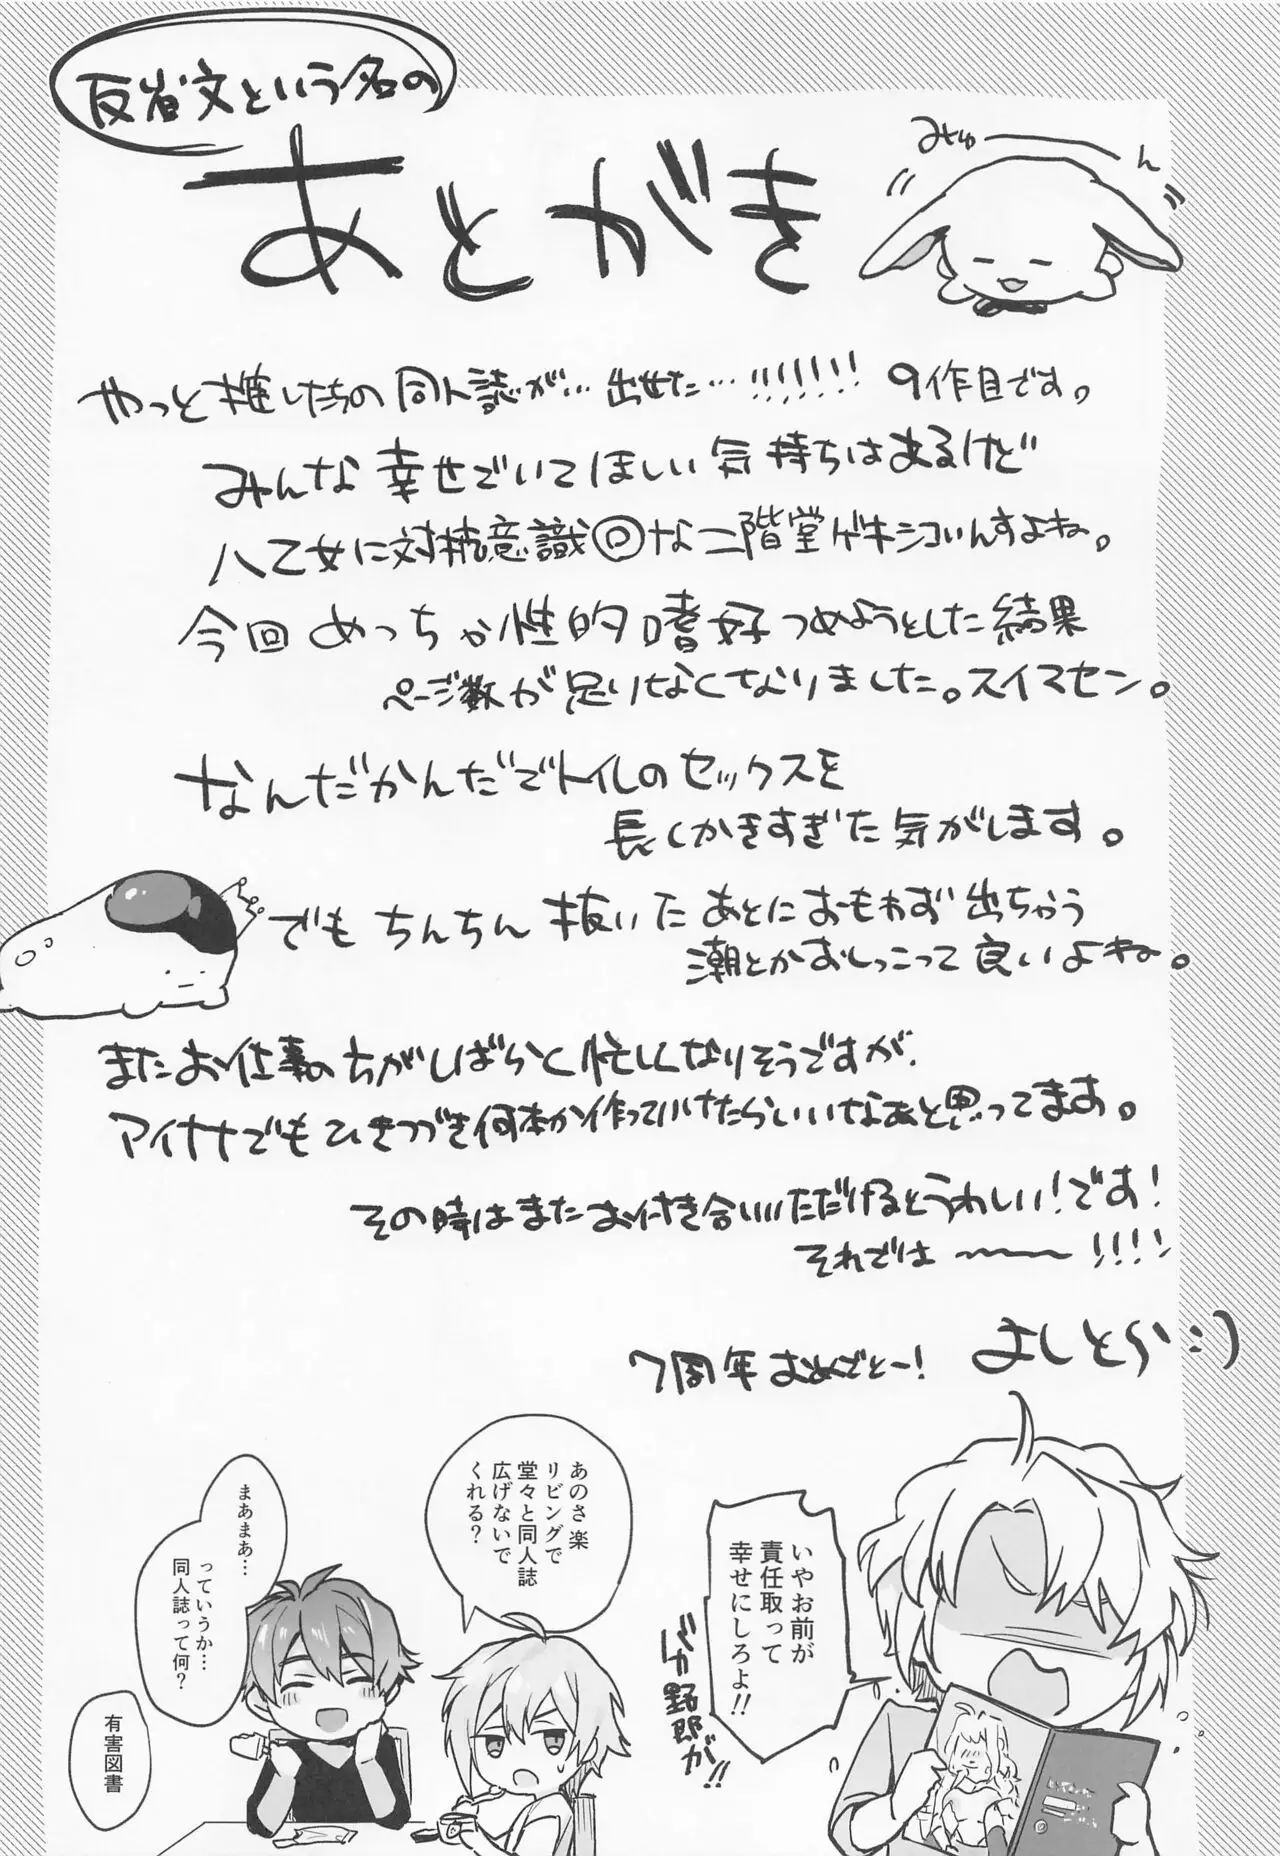 反省文という名の
あとがき
みゅーん
やっと推したちの同人誌が…出せた…!!!!!!! 9作目です。
みんな幸せでいてほしい気持ちはあるけど
八乙女に対抗意識◎な二階堂ゲキシコいんすよね。
今回めっちゃ性的嗜好つめようとした結果
ページ数が足りなくなりました。スイマセン。
なんだかんだでトイレのセックスを
長くかきすぎた気がします。
でもちんちん抜いたあとにおもわず出ちゃう
潮とかおしっこって良いよね。
またお仕事のちがしばらく忙しくなりそうですが、
アイナナでもひきつづき何本か作っていけたらいいなあと思ってます。
その時はまたお付き合いいただけるとうれしい!です!
それでは〜〜〜!!!!
7周年おめごとー!
よしとら:)
いやお前が
責任取って
幸せにしろよ!!
バカ野郎が!!
あのさ楽
リビングで
堂々と同人誌
広げないで
くれる?
まあまあ…
っていうか…
同人誌って何?
有害図書